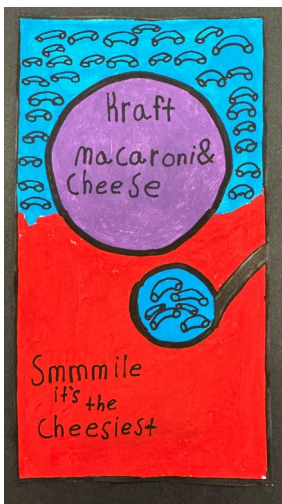 Kraft
macaroni&
Cheese
Smmmile
it's the
Cheesiest